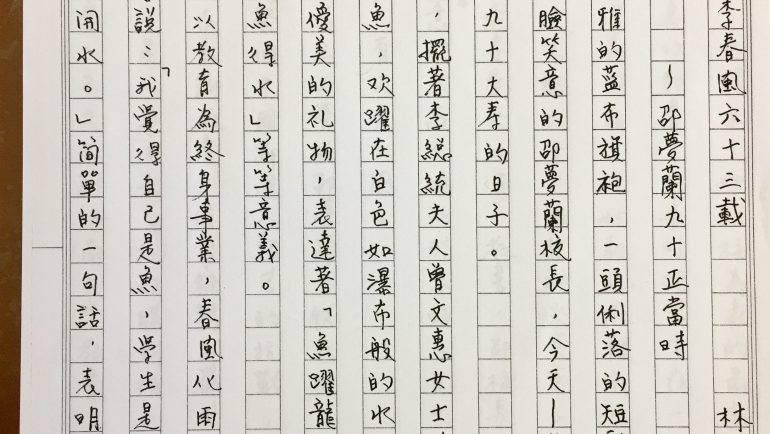 李春風六十三載 林
～邵夢蘭九十正當時
雅的藍布旗袍，一頭俐落的短
臉笑意的邵夢蘭校長，今天－
九十大寿的日子。
，擺著李總統夫人曾文惠女士
魚，欢躍在白色如瀑布般的水
優美的礼物，表達著「魚躍龍
魚得水」等等意義。
以教育為終身事業，春風化雨
說：「我覺得自己是魚，學生是
開水。」简單的一句話，表明